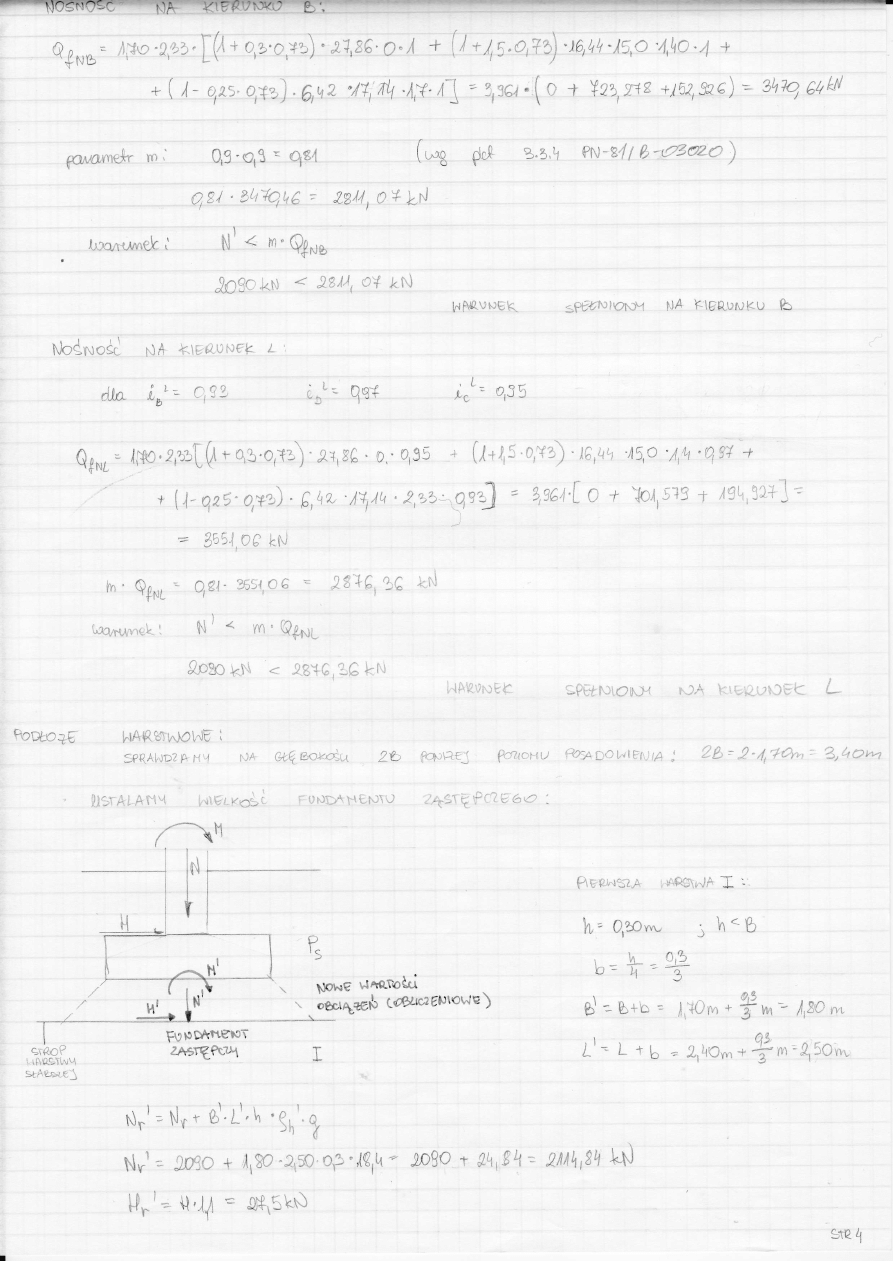 NOŚNOŚĆ NA KIERUNKU B:
QfNB = 1,70·2,33·[(1+0,3·0,73)·27,86·0·1 + (1+1,5·0,73)·16,44·15,0·1,40·1 +
+ (1-0,25·0,73)·6,42·17,14·1,7·1] = 3,961·(0 + 723,278 +152,926) = 3470,64kN
parametr m: 0,9·0,9 = 0,81 (wg pkt 3.3.4 PN-81/B-03020)
0,81·3470,46 = 2811,07 kN
warunek: N' < m·QfNB
2090 kN < 2811,07 kN
WARUNEK SPEŁNIONY NA KIERUNKU B
NOŚNOŚĆ NA KIERUNEK L:
dla iB^L = 0,93 iD^L = 0,97 iC^L = 0,95
QfNL = 1,70·2,33[(1+0,3·0,73)·27,86·0·0,95 + (1+1,5·0,73)·16,44·15,0·1,4·0,97 +
+ (1-0,25·0,73)·6,42·17,14·2,33·0,93] = 3,961·[0 + 701,579 + 194,927] =
= 3551,06 kN
m·QfNL = 0,81·3551,06 = 2876,36 kN
warunek: N' < m·QfNL
2090 kN < 2876,36 kN
WARUNEK SPEŁNIONY NA KIERUNEK L
PODŁOŻE WARSTWOWE:
SPRAWDZAMY NA GŁĘBOKOŚCI 2B PONIŻEJ POZIOMU POSADOWIENIA: 2B = 2·1,70m = 3,40m
USTALAMY WIELKOŚĆ FUNDAMENTU ZASTĘPCZEGO:
M
N
H
Ps
M'
H'
N'
NOWE WARTOŚCI
OBCIĄŻEŃ (OBLICZENIOWE)
FUNDAMENT
ZASTĘPCZY
I
STROP
WARSTWY
SŁABSZEJ
PIERWSZA WARSTWA I:
h = 0,30m ; h < B
b = h/4 = 0,3/3
B' = B+b = 1,70m + 0,3/3 m = 1,80 m
L' = L + b = 2,40m + 0,3/3 m = 2,50m
Nr' = Nr + B'·L'·h·ρh'·g
Nr' = 2090 + 1,80·2,50·0,3·18,4 = 2090 + 24,84 = 2114,84 kN
Hr' = H·1,1 = 27,5 kN
STR 4